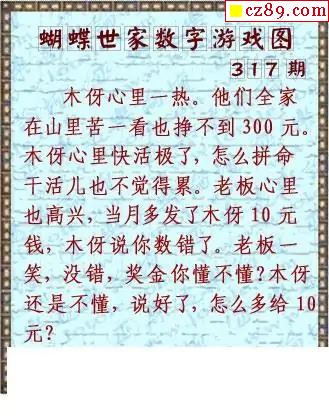 cz89.com
蝴蝶世家数字游戏图
317期
木伢心里一热。他们全家
在山里苦一看也挣不到300元。
木伢心里快活极了,怎么拼命
干活儿也不觉得累。老板心里
也高兴,当月多发了木伢10元
钱,木伢说你数错了。老板一
笑,没错,奖金你懂不懂?木伢
还是不懂,说好了,怎么多给10
元?